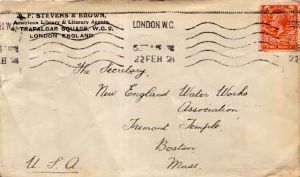 B. F. STEVENS & BROWN,
American Library & Literary Agents
TRAFALGAR SQUARE, W.C. 2,
LONDON ENGLAND.
LONDON.W.C.
22 FEB
The Secretary,
New England Water Works
Association
Tremont Temple,
Boston
Mass.
U.S.A